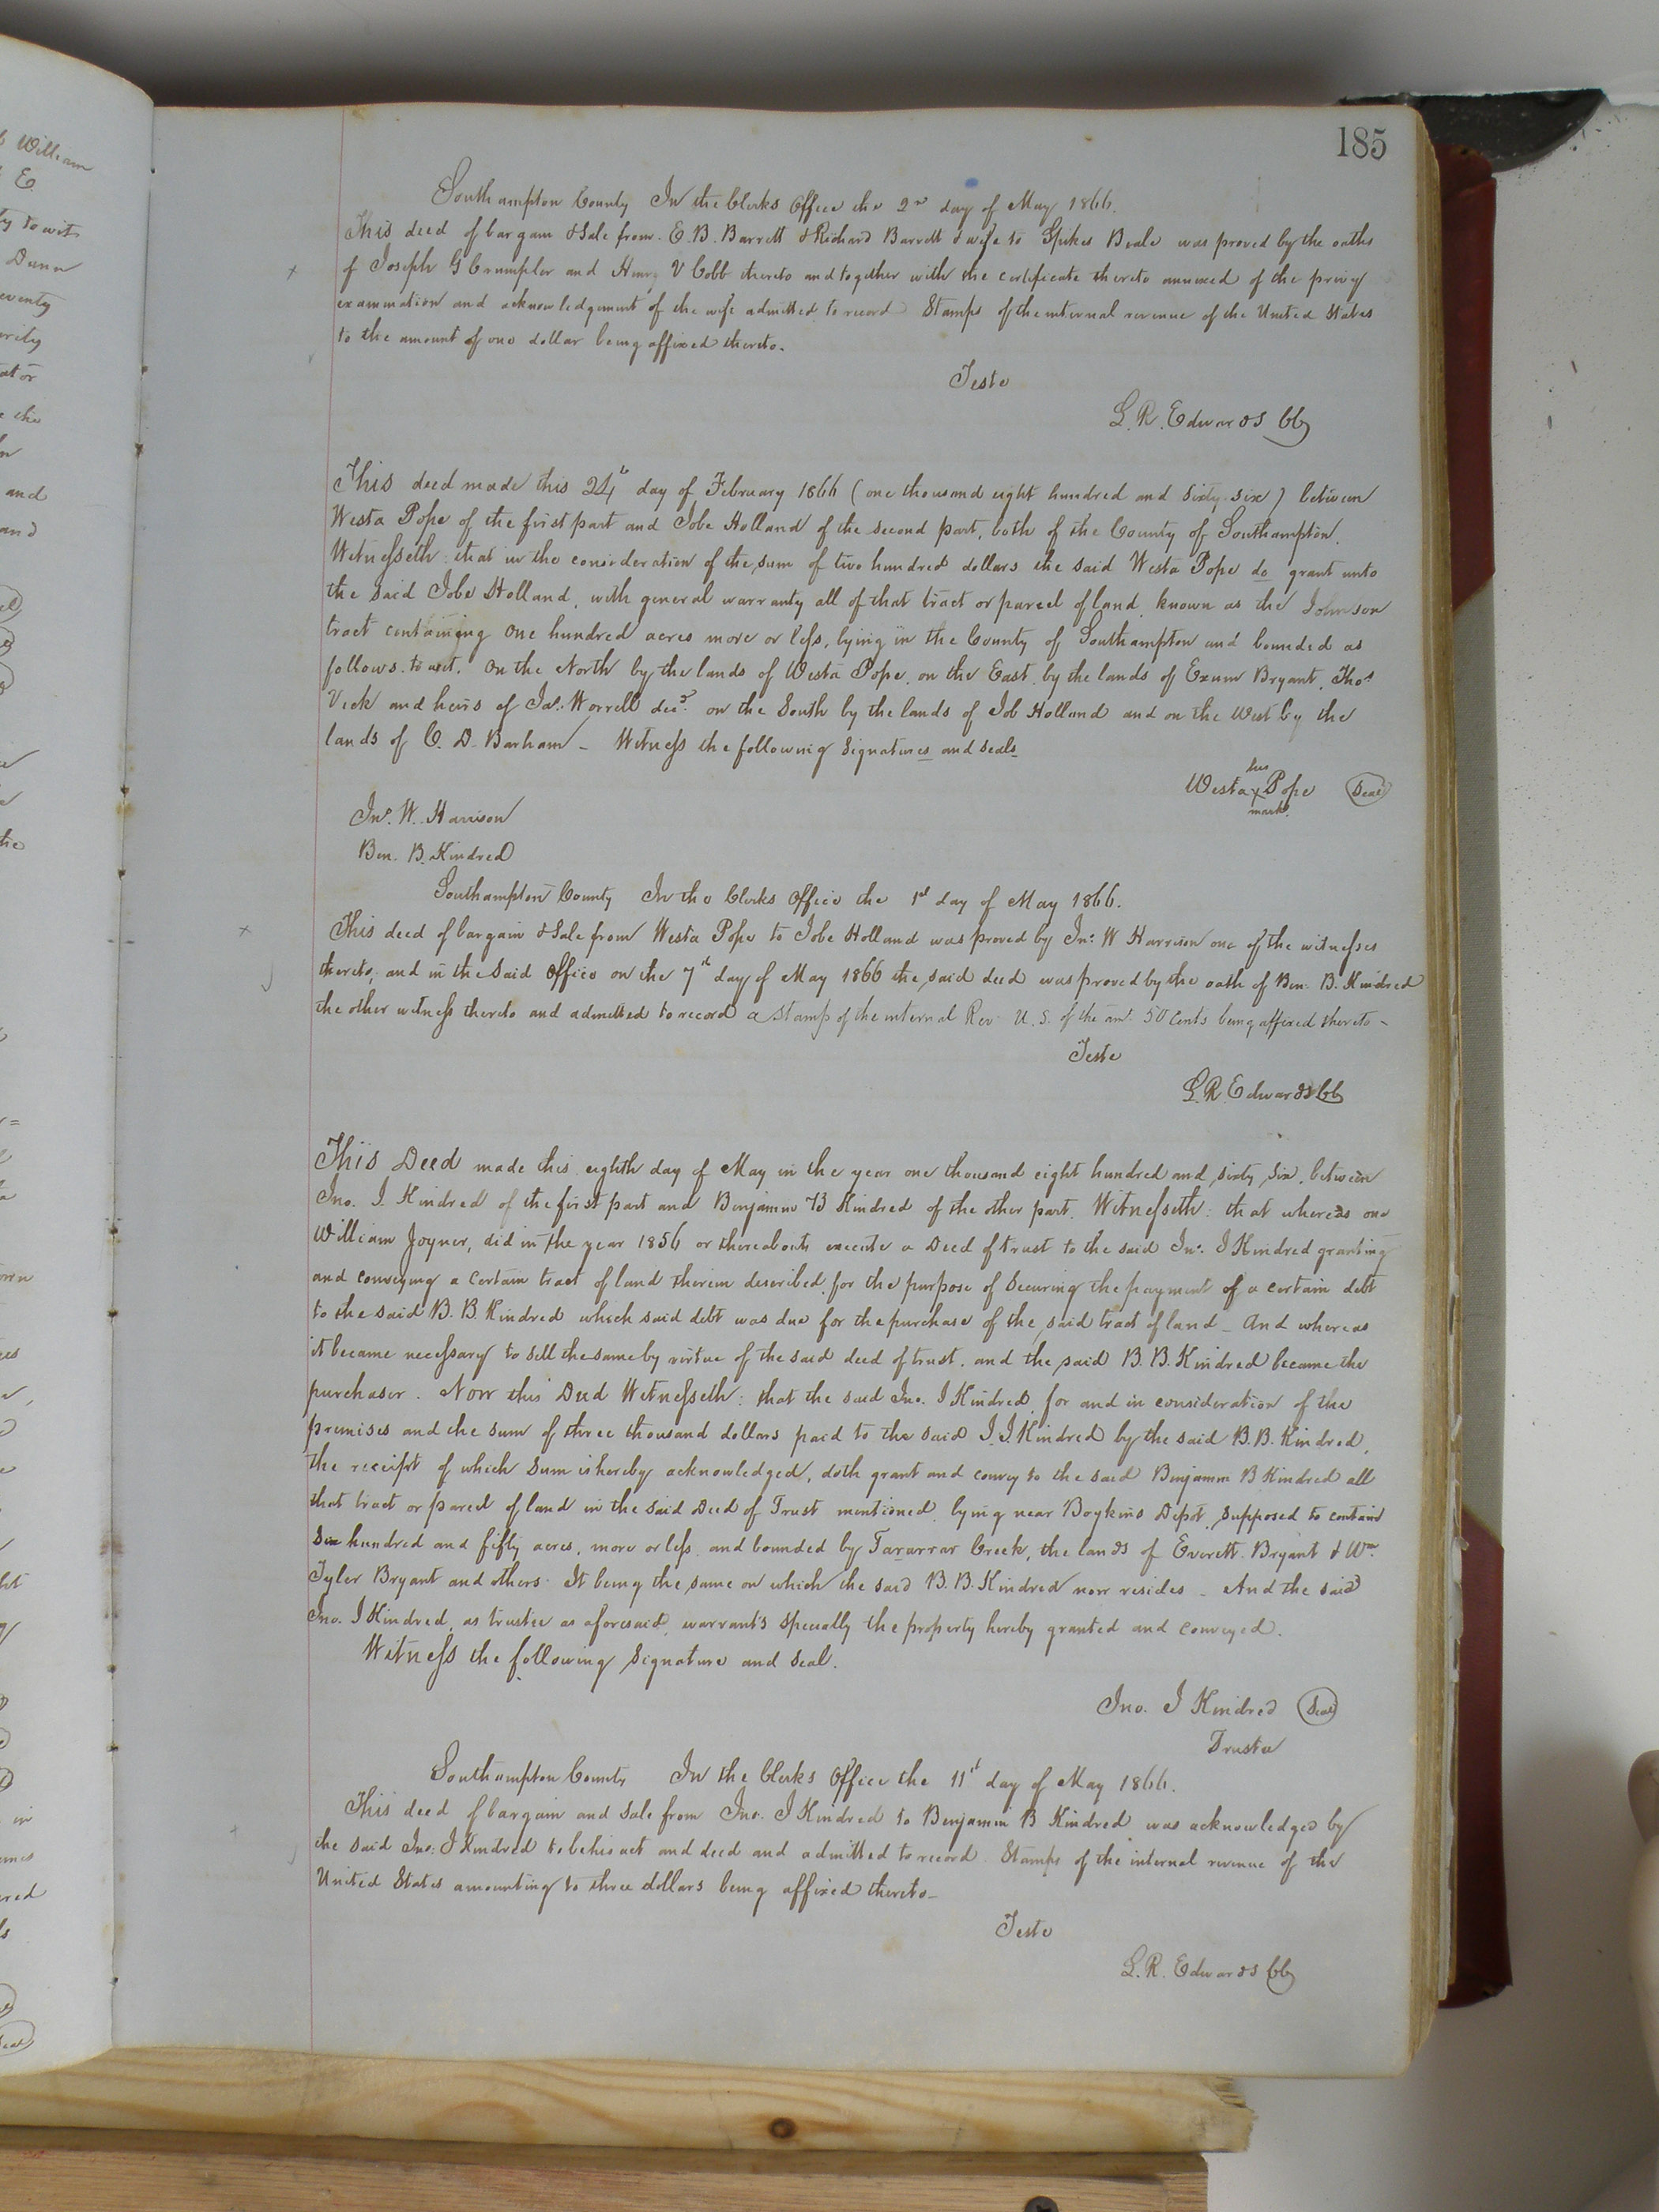 185
Southampton County In the Clerks Office the 2nd day of May 1866.
This deed of bargain & Sale from E. B. Barrett & Richard Barrett & wife to Spikes Beale was proved by the oaths
of Joseph G Crumpler and Henry V Cobb thereto and together with the certificate thereto annexed of the privy
examination and acknowledgement of the wife admitted to record Stamps of the internal revenue of the United States
to the amount of one dollar being affixed thereto.
Teste
L. R. Edwards CC
This deed made this 24th day of February 1866 (one thousand eight hundred and sixty-six) between
Westa Pope of the first part and Jobe Holland of the second part, both of the County of Southampton.
Witnesseth: that in the consideration of the sum of two hundred dollars the said Westa Pope do grant unto
the said Jobe Holland, with general warranty all of that tract or parcel of land known as the Johnson
tract containing One hundred acres more or less, lying in the County of Southampton and bounded as
follows. to wit. On the North by the lands of Westa Pope, on the East by the lands of Exum Bryant, Thos
Vick and heirs of Jas. Worrell decd. on the South by the lands of Job Holland and on the West by the
lands of C. D. Barham – Witness the following Signatures and seals
his
Westa x Pope Seal
mark
Jno. W. Harrison
Ben. B. Kindred
Southampton County In the Clerks Office the 1st day of May 1866.
This deed of bargain & Sale from Westa Pope to Jobe Holland was proved by Jno. W Harrison one of the witnesses
thereto, and in the Said Office on the 7th day of May 1866 the said deed was proved by the oath of Ben. B. Kindred
the other witness thereto and admitted to record a stamp of the internal Rev. U. S. of the amt. 50 Cents being affixed thereto –
Teste
L. R. Edwards CC
This Deed made this eighth day of May in the year one thousand eight hundred and sixty six, between
Jno. J. Kindred of the first part and Benjamin B Kindred of the other part. Witnesseth: that whereas one
William Joyner, did in the year 1856 or thereabouts execute a Deed of trust to the said Jno. J Kindred granting
and conveying a certain tract of land therein described, for the purpose of Securing the payment of a certain debt
to the said B. B. Kindred which said debt was due for the purchase of the said tract of land – And whereas
it became necessary to sell the same by virtue of the said deed of trust. and the said B. B. Kindred became the
purchaser. Now this Deed Witnesseth: that the said Jno. J Kindred, for and in consideration of the
premises and the sum of three thousand dollars paid to the said J. J. Kindred by the said B. B. Kindred,
the receipt of which Sum is hereby acknowledged, doth grant and convey to the said Benjamin B Kindred all
that tract or parcel of land in the said Deed of Trust mentioned, lying near Boykins Depot, supposed to contain
Six hundred and fifty acres, more or less, and bounded by Tararrar Creek, the lands of Everett Bryant & Wm.
Tyler Bryant and others. It being the same on which the said B. B. Kindred now resides – And the said
Jno. J Kindred, as trustee as aforesaid, warrants specially the property hereby granted and conveyed.
Witness the following Signature and Seal.
Jno. J Kindred Seal
Trustee
Southampton County In the Clerks Office the 11th day of May 1866.
This deed of bargain and Sale from Jno. J Kindred to Benjamin B Kindred was acknowledged by
the said Jno. J Kindred to be his act and deed and admitted to record Stamps of the internal revenue of the
United States amounting to three dollars being affixed thereto –
Teste
L. R. Edwards CC